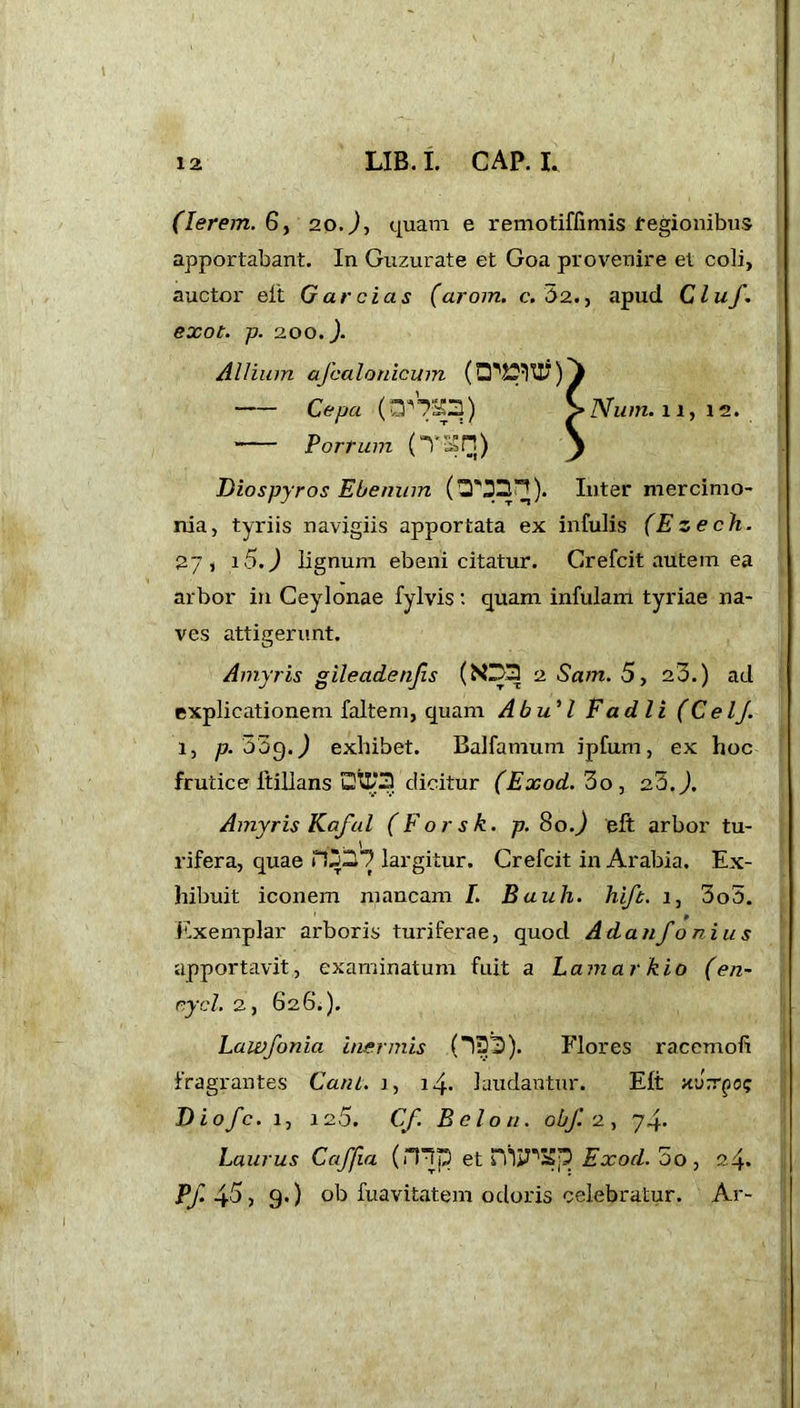 12 LIB. I. CAP. I.
(Ierem. 6, 20.), quam e remotiſſimis regionibus
apportabant. In Guzurate et Goa provenire et coli,
auctor eſt Garcias (arom. c. 32., apud Cluſ.
exot. p. 200.).
Allium aſcalonicum (שׁוּמִים)
—— Cepa (בְּצָלִים) } Num. 11, 12.
—— Porrum (חָצִיר)
Diospyros Ebenum (הָבְנִים). Inter mercimo-
nia, tyriis navigiis apportata ex inſulis (Ezech.
27, 15.) lignum ebeni citatur. Creſcit autem ea
arbor in Ceylonae ſylvis: quam inſulam tyriae na-
ves attigerunt.
Amyris gileadenſis (בָּכָא 2 Sam. 5, 23.) ad
explicationem ſaltem, quam Abu'l Fadli (Celſ.
1, p. 339.) exhibet. Balſamum ipſum, ex hoc
frutice ſtillans בֶּשֶׂם dicitur (Exod. 30, 23.).
Amyris Kafal (Forsk. p. 80.) eſt arbor tu-
rifera, quae לְבֹנָה largitur. Creſcit in Arabia. Ex-
hibuit iconem mancam I. Bauh. hiſt. 1, 303.
Exemplar arboris turiferae, quod Adanſonius
apportavit, examinatum fuit a Lamarkio (en-
cycl. 2, 626.).
Lawſonia inermis (כֹּפֶר). Flores racemoſi
fragrantes Cant. 1, 14. laudantur. Eſt κύπρος
Dioſc. 1, 125. Cf. Belon. obſ. 2, 74.
Laurus Caſſia (קִדָּה et קְצִיעוֹת Exod. 30, 24.
Pſ. 45, 9.) ob ſuavitatem odoris celebratur. Ar-